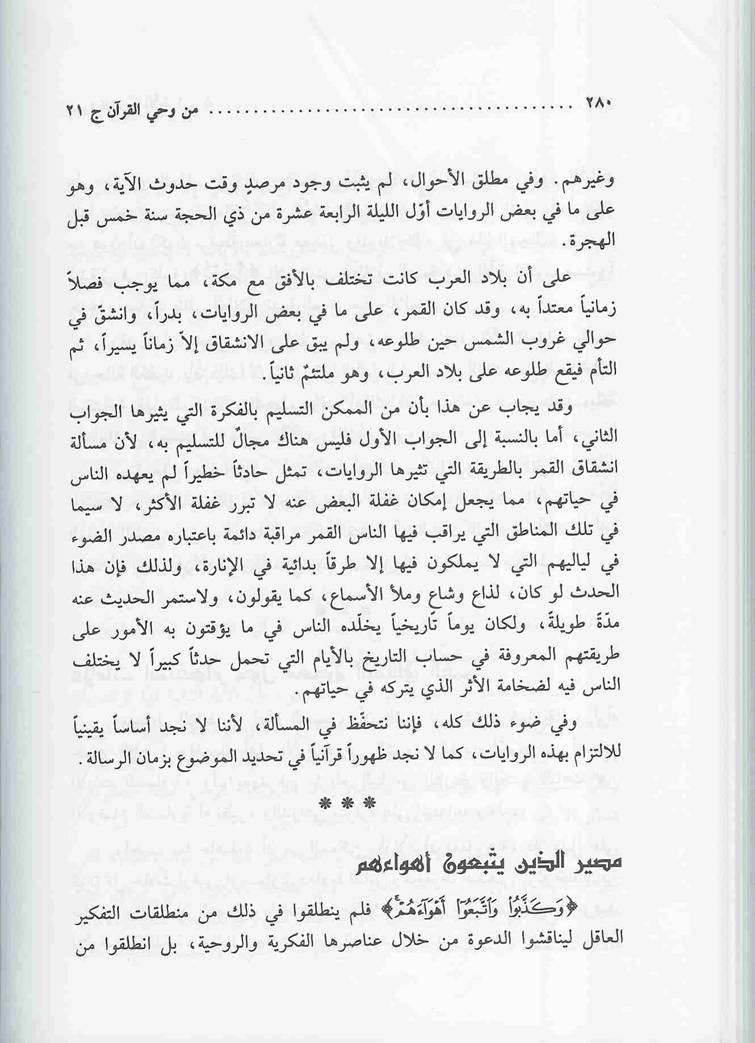 ٢٨٠ ........................................ من وحي القرآن ج ٢١
وغيرهم. وفي مطلق الأحوال، لم يثبت وجود مرصدٍ وقت حدوث الآية، وهو
على ما في بعض الروايات أوّل الليلة الرابعة عشرة من ذي الحجة سنة خمس قبل
الهجرة.
على أن بلاد العرب كانت تختلف بالأفق مع مكة، مما يوجب فصلاً
زمانياً معتداً به، وقد كان القمر، على ما في بعض الروايات، بدراً، وانشقّ في
حوالي غروب الشمس حين طلوعه، ولم يبق على الانشقاق إلاّ زماناً يسيراً، ثم
التأم فيقع طلوعه على بلاد العرب، وهو ملتئمٌ ثانياً.
وقد يجاب عن هذا بأن من الممكن التسليم بالفكرة التي يثيرها الجواب
الثاني، أما بالنسبة إلى الجواب الأول فليس هناك مجالٌ للتسليم به، لأن مسألة
انشقاق القمر بالطريقة التي تثيرها الروايات، تمثل حادثاً خطيراً لم يعهده الناس
في حياتهم، مما يجعل إمكان غفلة البعض عنه لا تبرر غفلة الأكثر، لا سيما
في تلك المناطق التي يراقب فيها الناس القمر مراقبة دائمة باعتباره مصدر الضوء
في لياليهم التي لا يملكون فيها إلا طرقاً بدائية في الإنارة، ولذلك فإن هذا
الحدث لو كان، لذاع وشاع وملأ الأسماع، كما يقولون، ولاستمر الحديث عنه
مدّةً طويلةً، ولكان يوماً تاريخياً يخلّده الناس في ما يؤقتون به الأمور على
طريقتهم المعروفة في حساب التاريخ بالأيام التي تحمل حدثاً كبيراً لا يختلف
الناس فيه لضخامة الأثر الذي يتركه في حياتهم.
وفي ضوء ذلك كله، فإننا نتحفّظ في المسألة، لأننا لا نجد أساساً يقينياً
للالتزام بهذه الروايات، كما لا نجد ظهوراً قرآنياً في تحديد الموضوع بزمان الرسالة.
* * *
مصير الذين يتّبعون أهواءهم
﴿وَكَذَّبُوا۟ وَٱتَّبَعُوٓا۟ أَهْوَآءَهُمْ ۚ﴾ فلم ينطلقوا في ذلك من منطلقات التفكير
العاقل ليناقشوا الدعوة من خلال عناصرها الفكرية والروحية، بل انطلقوا من